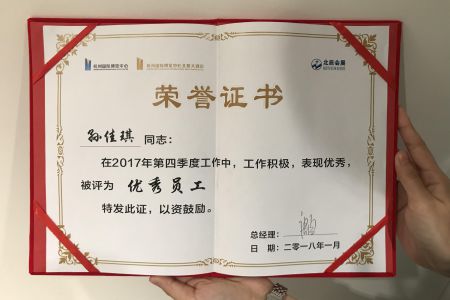 杭州国际博览中心
杭州国际博览中心北辰大酒店
北辰会展
荣誉证书
孙佳琪 同志：
在2017年第四季度工作中，工作积极，表现优秀，
被评为 优秀员工
特发此证，以资鼓励。
总经理：
日 期：二零一八年一月